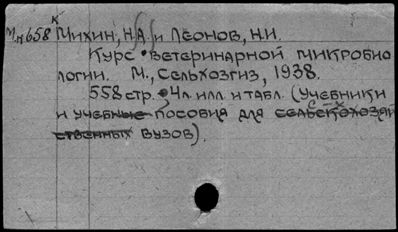 К
Мн658 Михин, Н.А. и Леонов, Н.И.
Курс ветеринарной микробио
логии. М., Сельхозгиз, 1938.
558 стр. 4л. илл. и табл. (Учебники
и учебные пособия для сельскохозяй
ственных с-х вузов).